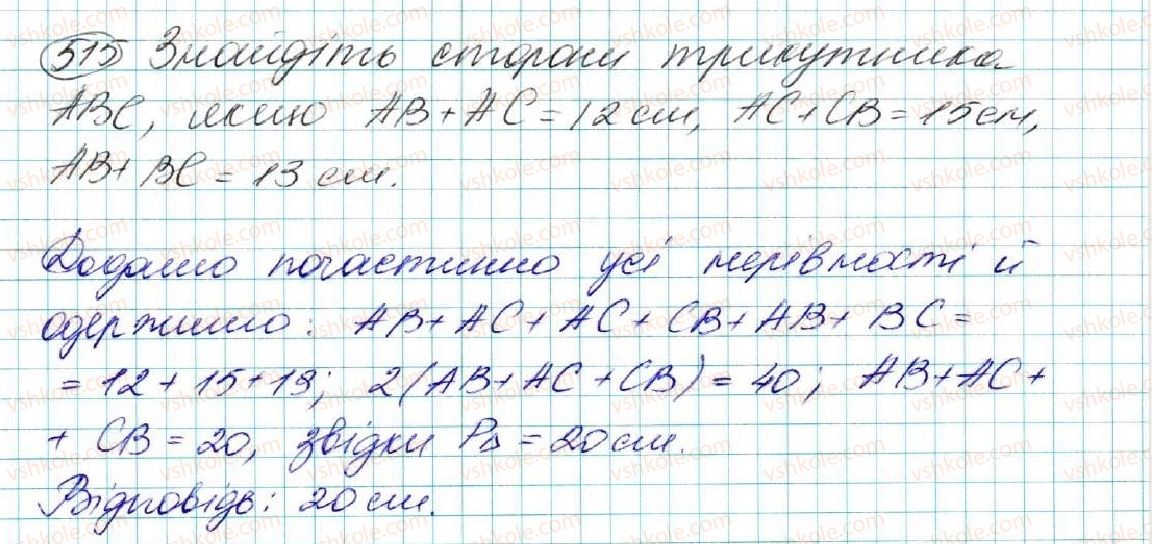 515 Знайдіть сторони трикутника
ABC, якщо AB + AC = 12 см, AC + CB = 15 см,
AB + BC = 13 см.
Додамо почастинно усі нерівності й
одержимо: AB + AC + AC + CB + AB + BC =
= 12 + 15 + 13; 2(AB + AC + CB) = 40; AB + AC +
+ CB = 20, звідки P∆ = 20 см.
Відповідь: 20 см.